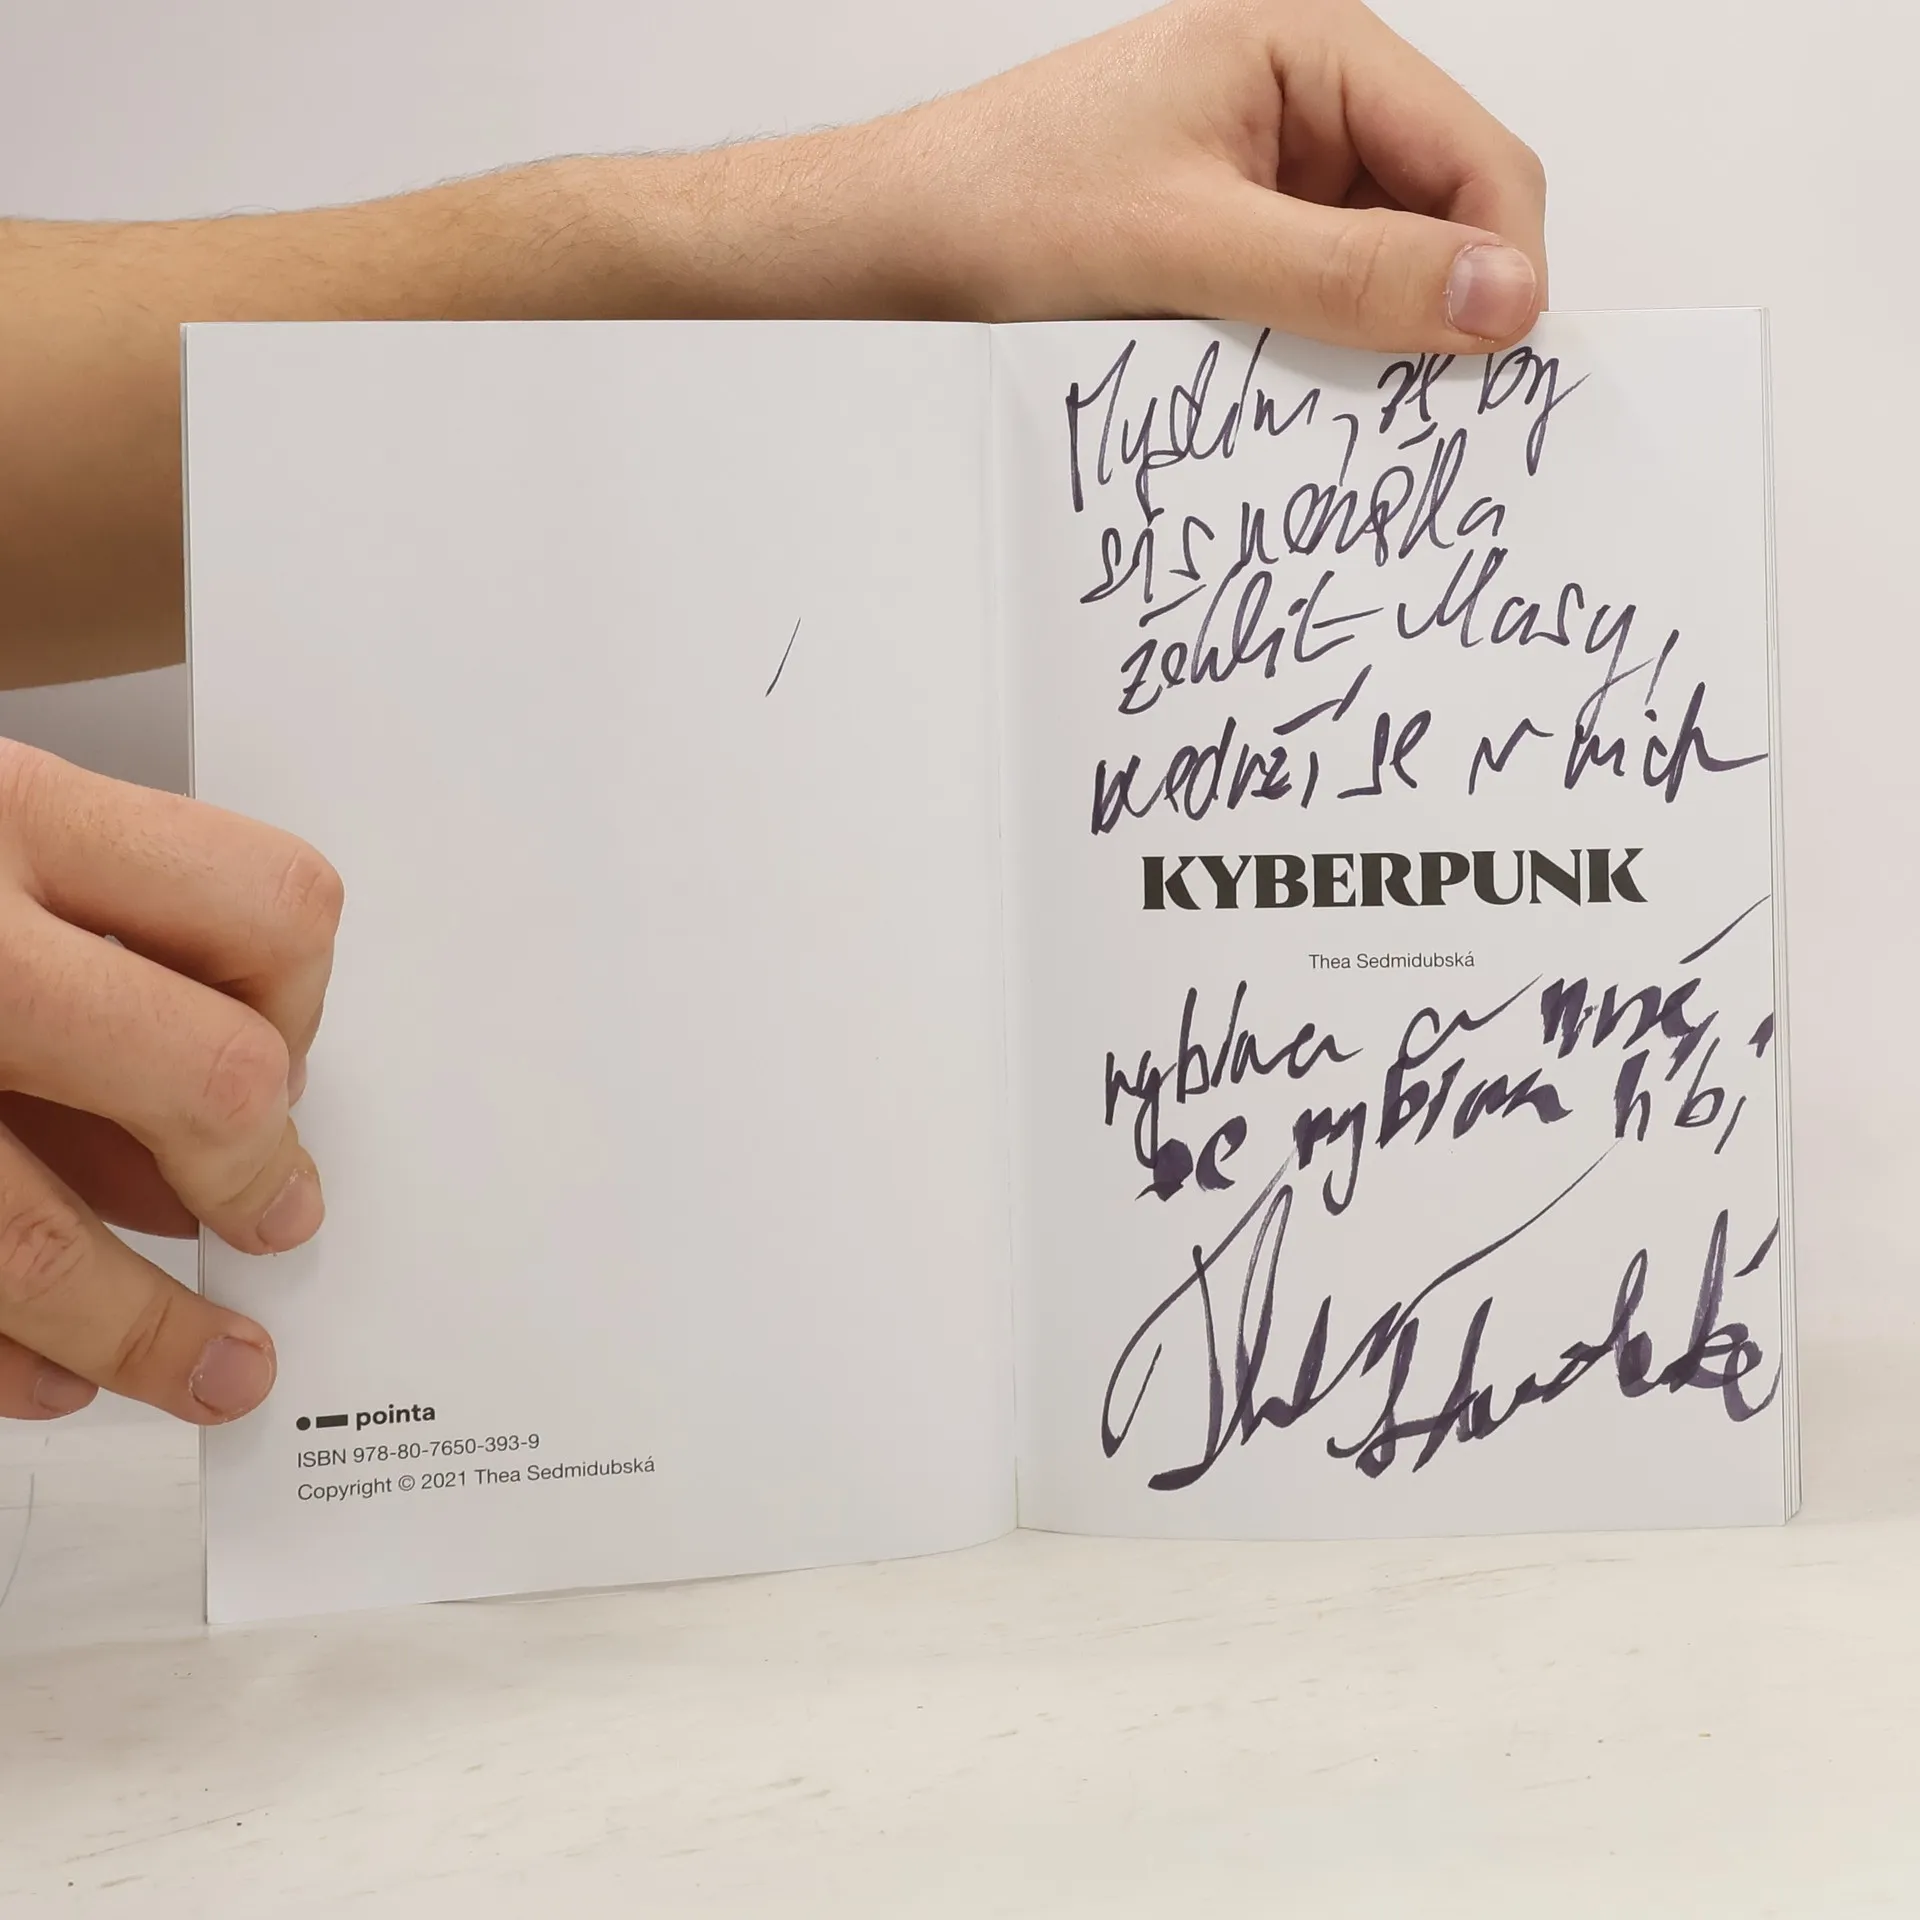 pointa
ISBN 978-80-7650-393-9
Copyright © 2021 Thea Sedmidubská
Myslím, že by
sis neměla
žehlit vlasy,
nedrží se v nich
KYBERPUNK
Thea Sedmidubská
rybina a mně
se rybina líbí
Thea